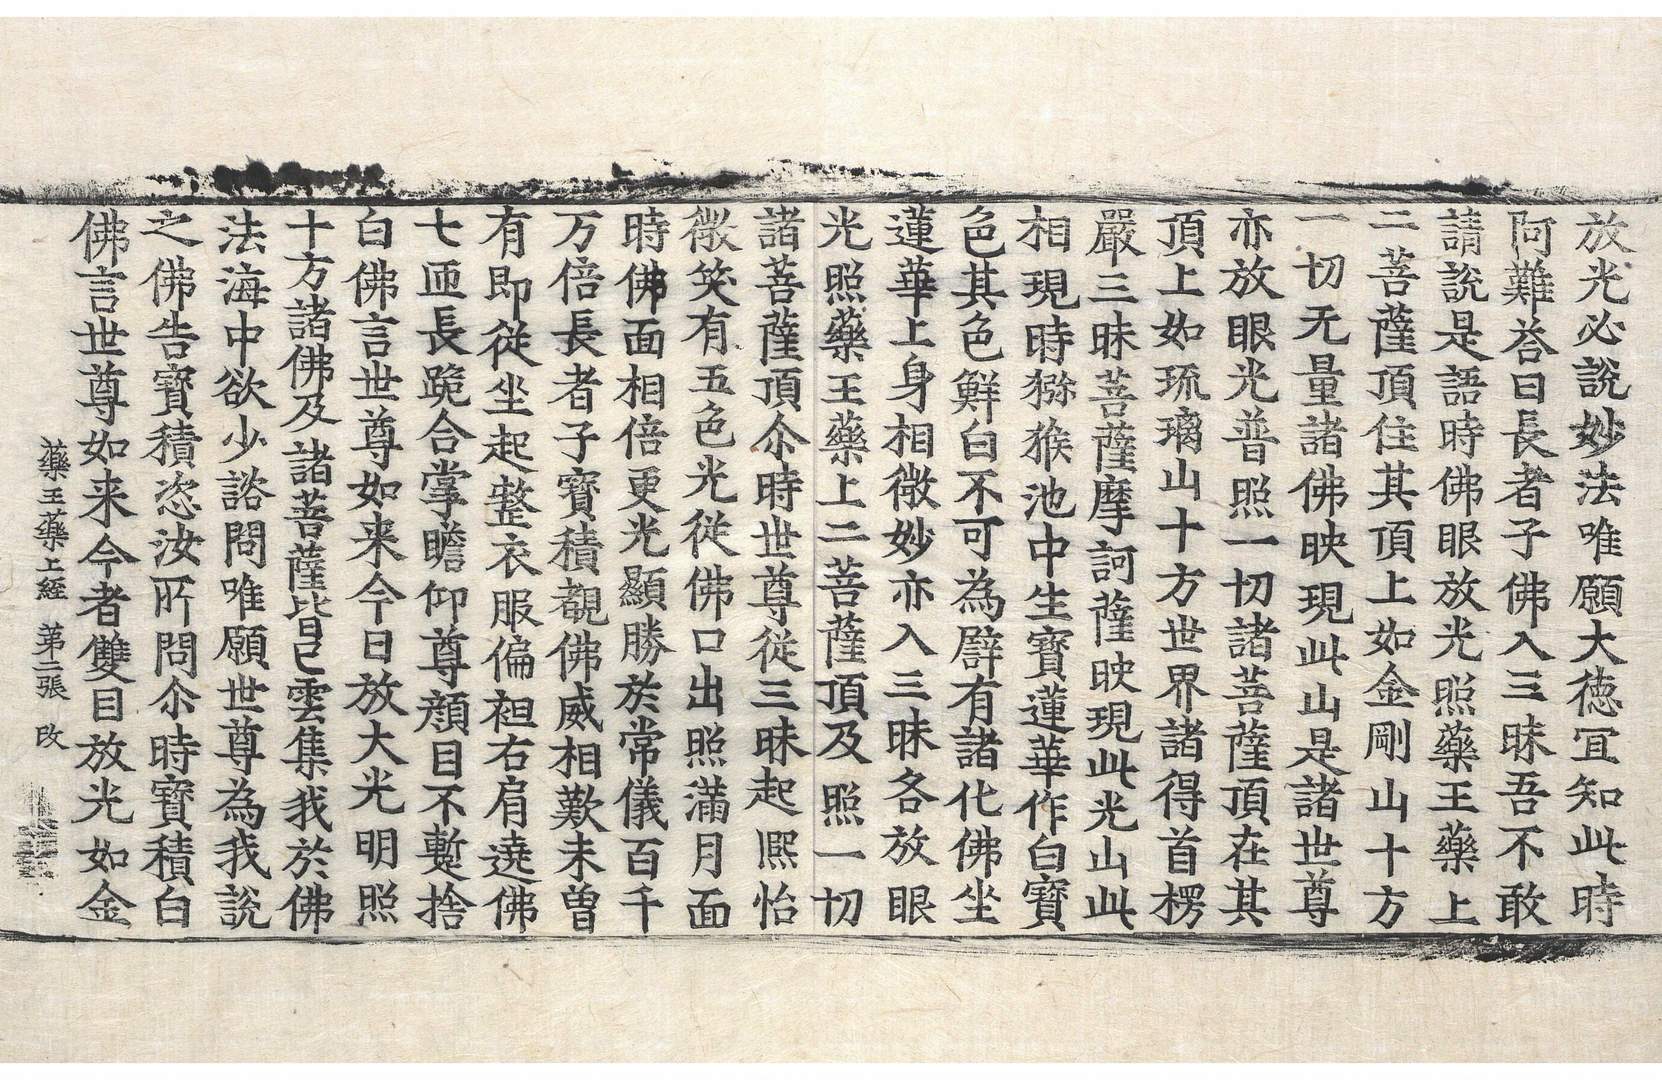 放光必說妙法唯願大徳冝知此時
阿難荅曰長者子佛入三昧吾不敢
請說是語時佛眼放光照藥王藥上
二菩薩頂住其頂上如金剛山十方
一切无量諸佛映現此山是諸世尊
亦放眼光普照一切諸菩薩頂在其
頂上如琉璃山十方世界諸得首楞
嚴三昧菩薩摩訶薩映現此光山此
相現時獼猴池中生寳蓮華作白寳
色其色鮮白不可為辟有諸化佛坐
蓮華上身相微妙亦入三昧各放眼
光照藥王藥上二菩薩頂及照一切
諸菩薩頂尒時世尊従三昧起熈怡
微笑有五色光従佛口出照滿月面
時佛面相倍更光顯勝於常儀百千
万倍長者子寳積覩佛威相歎未曽
有即従坐起整衣服偏袒右肩遶佛
七匝長跪合掌瞻仰尊顔目不蹔捨
白佛言世尊如来今日放大光明照
十方諸佛及諸菩薩皆已雲集我於佛
法海中欲少諮問唯願世尊為我說
之佛告寳積恣汝所問尒時寳積白
佛言世尊如来今者雙目放光如金
藥王藥上経 第二張 改